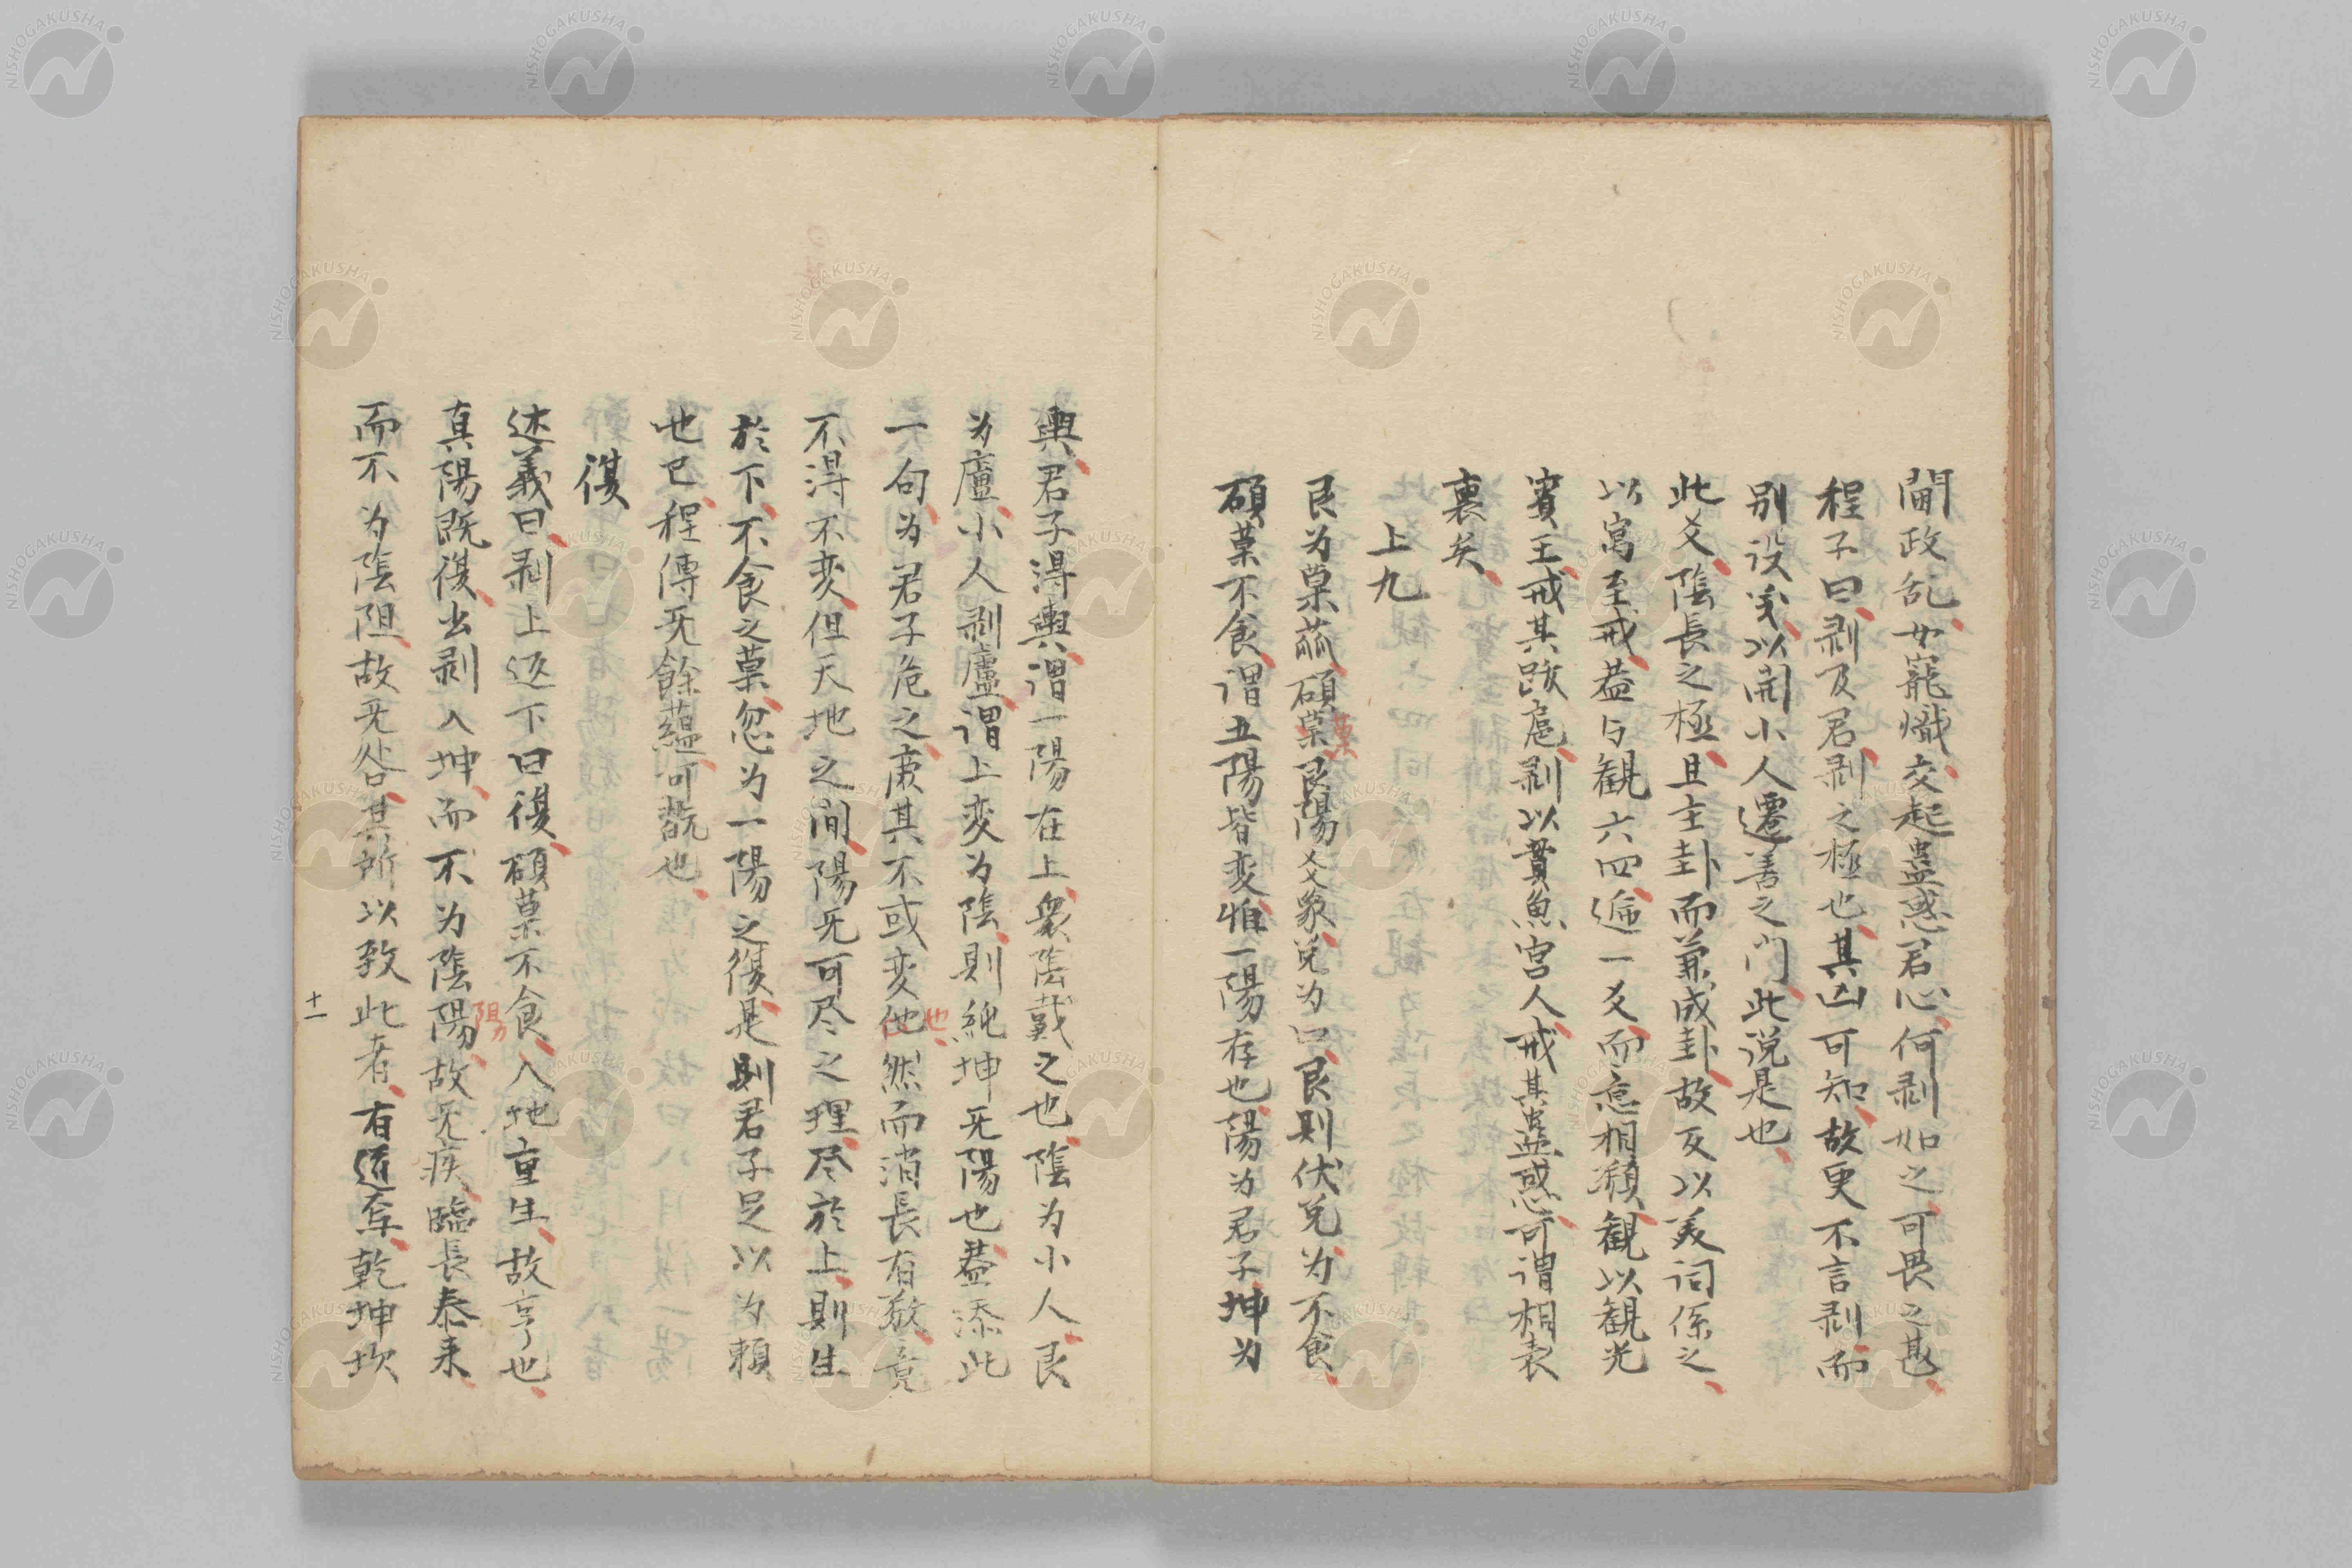 閫政乱、女寵熾、交起蛊惑君心、何剥如之、可畏之甚、
程子曰、剥及君、剥之極也、其凶可知、故更不言剥而
別設义、以開小人遷善之门、此说是也、
此爻陰長之極、且主卦而兼成卦、故反以美词係之、
以寓至戒、盖与観六四逓一爻、而意相類、観以観光
賓王、戒其跋扈、剥以貫魚宮人、戒其蛊惑、可謂相表
裏矣、
上九
艮为菓蓏、碩菓、艮陽爻象、兌为口、艮则伏兌、为不食、
菓
碩菓不食、謂五陽皆变、惟一陽存也、陽为君子、坤为
輿、君子得輿、謂一陽在上、衆陰戴之也、陰为小人、艮
为廬、小人剥廬、謂上变为陰、則純坤无陽也、盖添此
一句、为君子危之、庶其不或变他、然而消長有数、竟
也、
不得不变、但天地之间、陽无可尽之理、尽於上、則生
於下、不食之菓、忽为一陽之復、是則君子足以为頼
也已、程傳无餘蘊、可翫也、
復
述義曰、剥上返下曰復、碩菓不食、入地重生、故亨也、
真陽既復、出剥入坤、而不为陰陽、故无疾、臨長泰来、
阻力
而不为陰阻、故无咎、其所以致此者、有道存、乾坤坎
十一
NISHOGAKUSHA